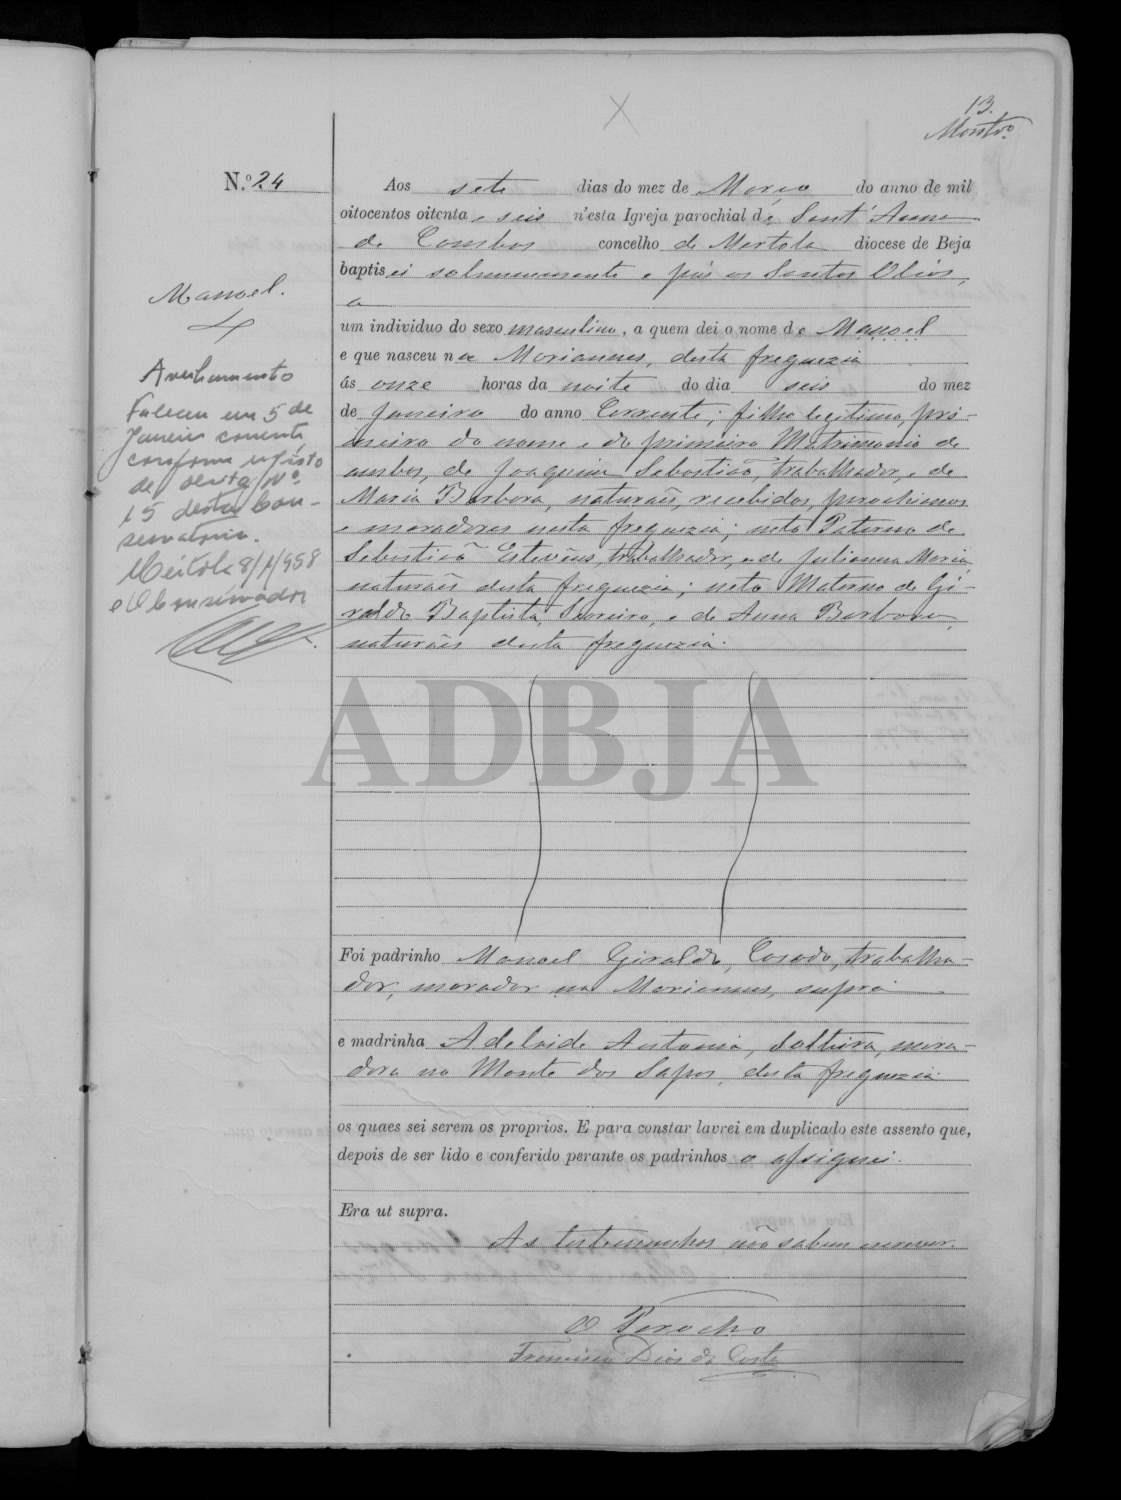 13.
N.º 24
Manoel.
Averbamento
Faleceu em 5 de
Janeiro corrente,
conforme registo
de n.º
15 desta Con-
servatória.
Mértola 8/1/958
O Conservador
Aos sete dias do mez de Março do anno de mil
oitocentos oitenta e seis n'esta Igreja parochial de Sant'Anna
de Cambas concelho de Mertola diocese de Beja
baptisei solemnemente e puz os Santos Oleos,
a
um individuo do sexo masculino, a quem dei o nome de Manoel
e que nasceu na Moriannes, desta freguezia
ás onze horas da noite do dia seis do mez
de Janeiro do anno Corrente; filho legitimo, pri-
meiro do nome e do primeiro Matrimonio de
ambos, de Joaquim Sebastião, trabalhador, e de
Maria Barbora, naturaes, recebidos, parochianos
e moradores nesta freguezia; neto Paterno de
Sebastião Estevens, trabalhador, e de Julianna Maria,
naturaes desta freguezia; neto Materno de Gi-
raldo Baptista, e de Anna Barbora,
naturaes desta freguezia.
ADBJA
Foi padrinho Manoel Giraldo, Casado, trabalha-
dor, morador na Moriannes, supra
e madrinha Adelaide Antonia, Solteira, mora-
dora no Monte dos Sapos, desta freguezia
os quaes sei serem os proprios. E para constar lavrei em duplicado este assento que,
depois de ser lido e conferido perante os padrinhos o assignei.
Era ut supra.
As testemunhas não sabem escrever.
O Parocho
Francisco Dias da Costa